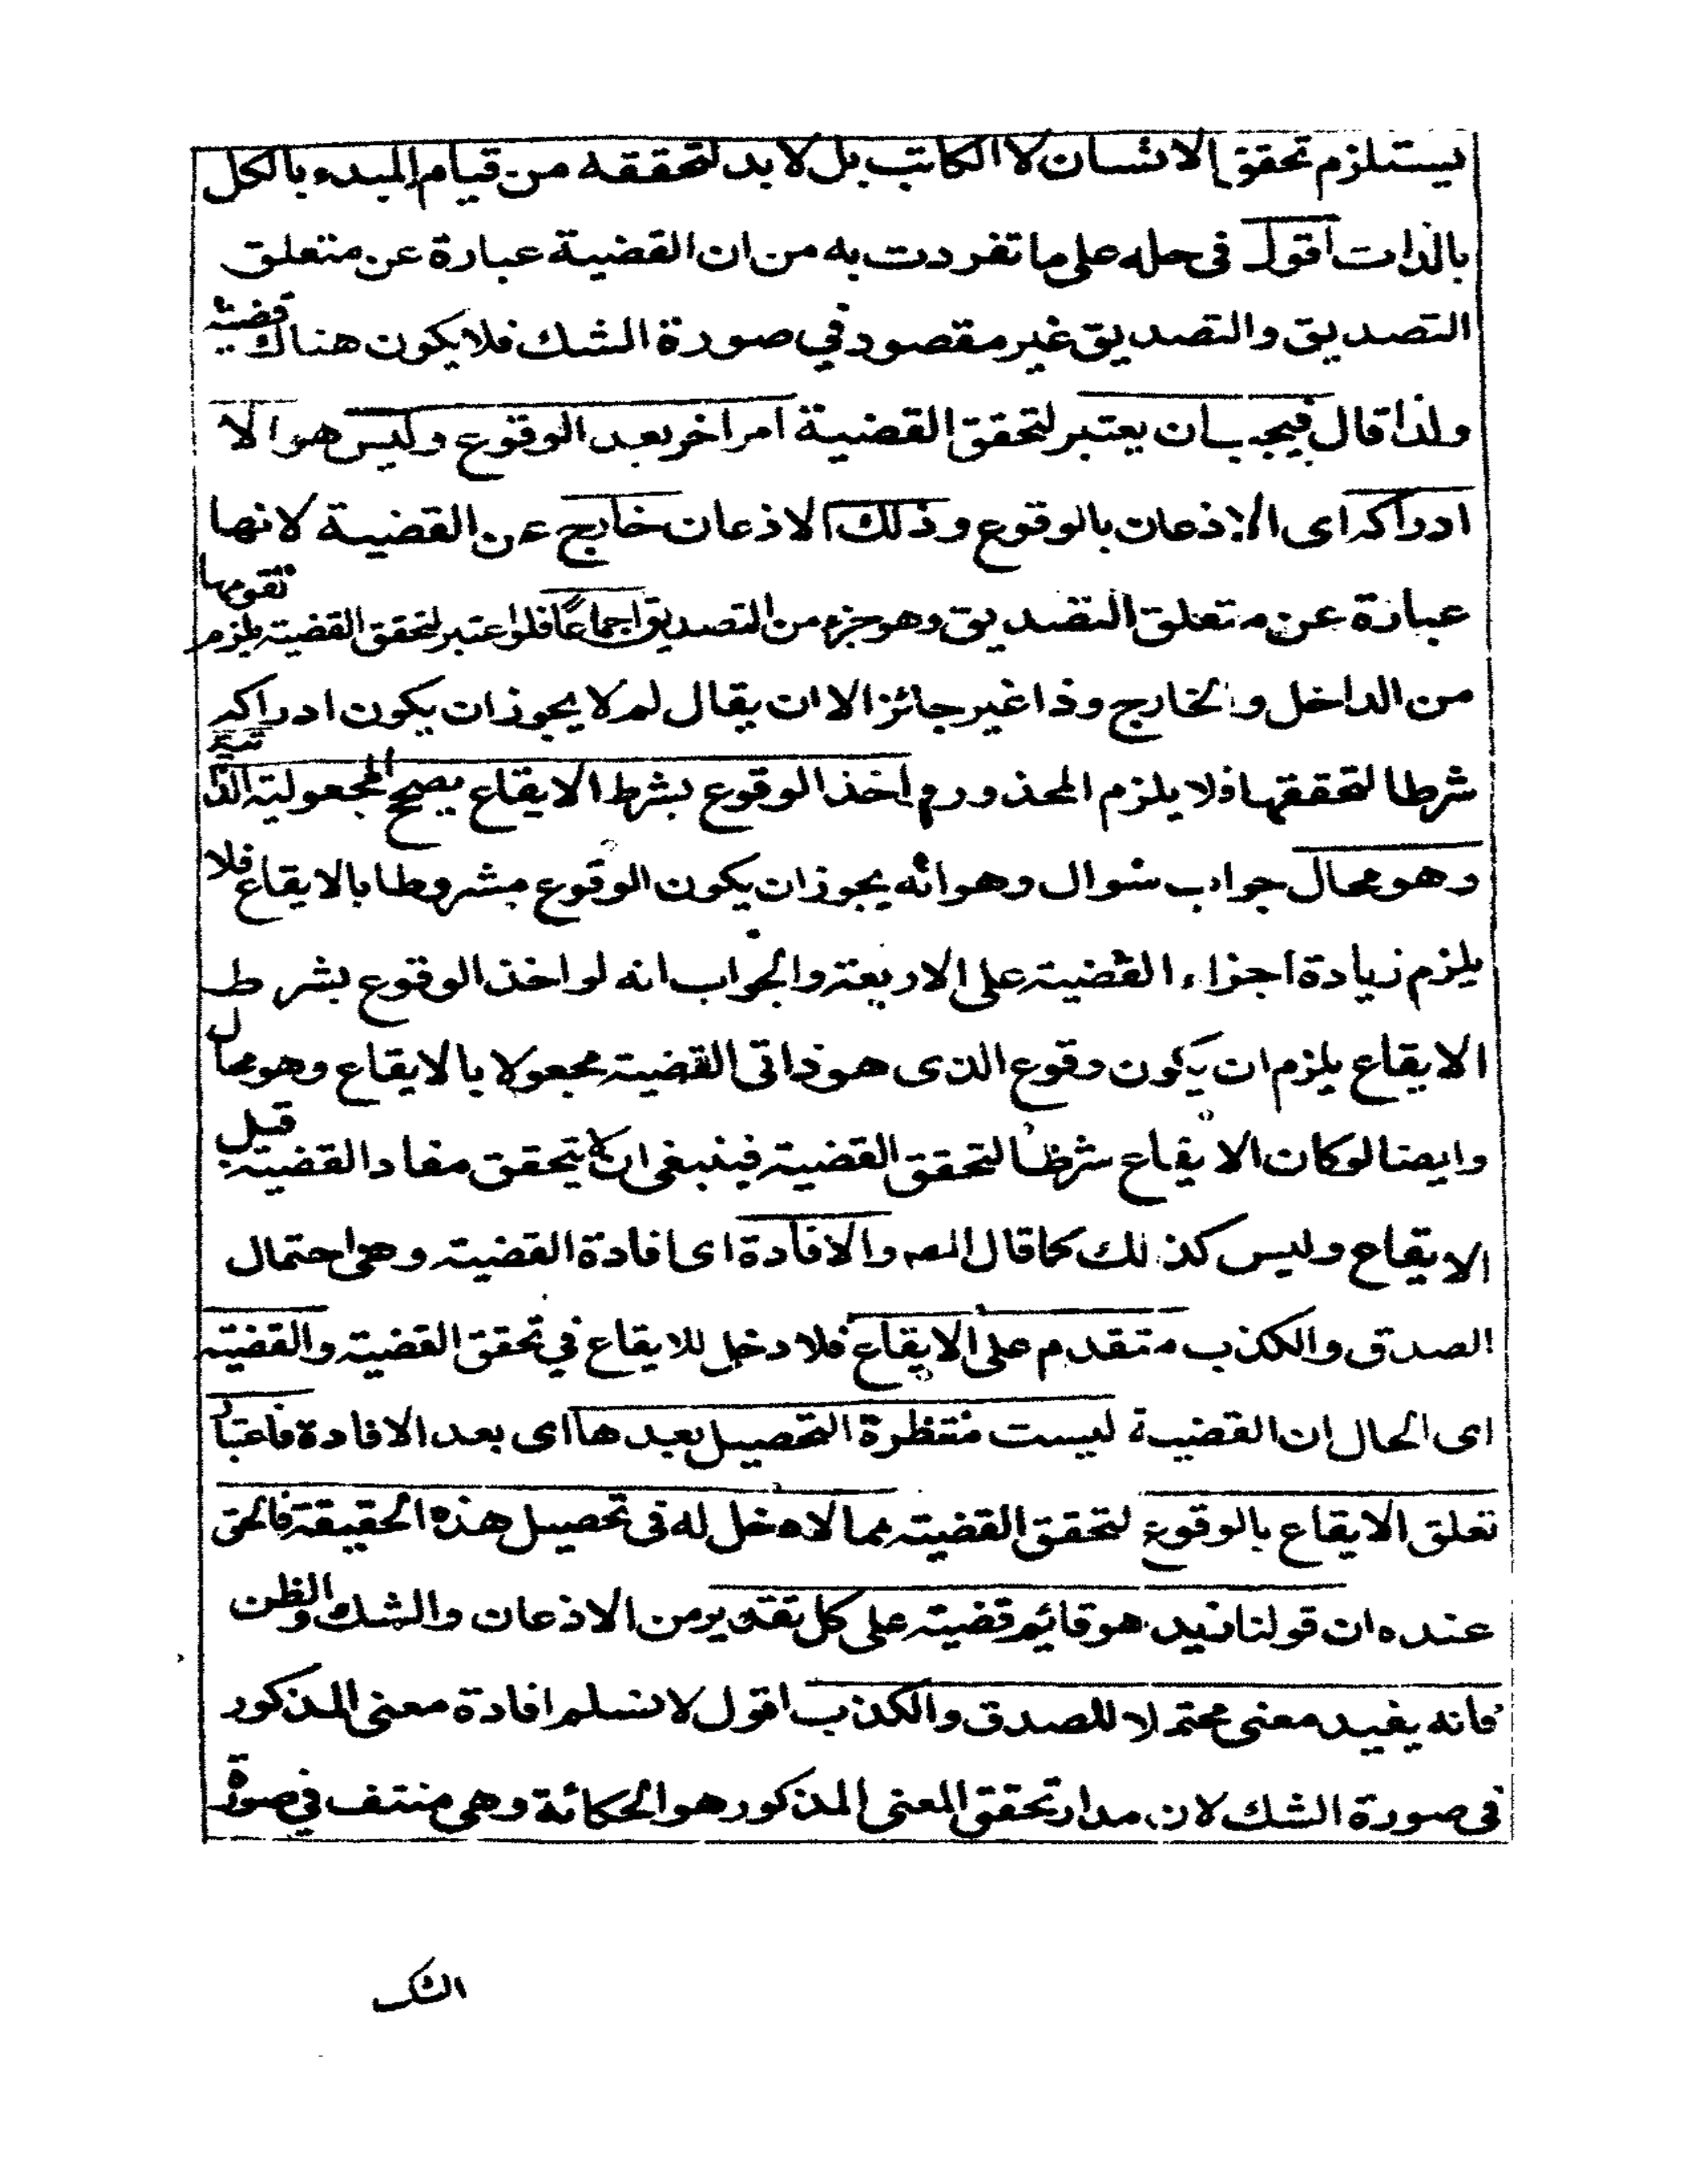 يستلزم تحقق الانسان لا الكاتب بل لا بد لتحققه من قيام المبدء بالكل
بالذات اقول في حله على ما تفردت به من ان القضية عبارة عن متعلق
التصديق والتصديق غير مقصود في صورة الشك فلا يكون هناك قضية
ولذا قال فيجب ان يعتبر لتحقق القضية امر اخر بعد الوقوع وليس هو الا
ادراكه اى الاذعان بالوقوع وذلك الاذعان خارج عن القضية لانها
عبارة عن متعلق التصديق وهو جزء من التصديق اجماعًا فلو اعتبر لتحقق القضية يلزم تقومها
من الداخل والخارج وذا غير جائز الا ان يقال لم لا يجوز ان يكون ادراكه
شرطا لتحققها فلا يلزم المحذور واخذ الوقوع بشرط الايقاع يصحح المجعولية الذاتية
وهو محال جواب سئوال وهو انه يجوز ان يكون الوقوع مشروطا بالايقاع فلا
يلزم زيادة اجزاء القضية على الاربعة والجواب انه لو اخذ الوقوع بشرط
الايقاع يلزم ان يكون وقوع الذى هو ذاتى القضية مجعولا بالايقاع وهو محال
وايضا لو كان الايقاع شرطا لتحقق القضية فينبغى ان لا يتحقق مفاد القضية قبل
الايقاع وليس كذلك كما قال المصـ والافادة اى افادة القضية وهى احتمال
الصدق والكذب متقدم على الايقاع فلا دخل للايقاع في تحقق القضية والقضية
اى الحال ان القضية ليست منتظرة التحصيل بعدها اى بعد الافادة فاعتبار
تعلق الايقاع بالوقوع لتحقق القضية مما لا دخل له في تحصيل هذه الحقيقة فالحق
عنده ان قولنا زيد هو قائم قضية على كل تقدير من الاذعان والشك والظن
فانه يفيد معنى محتملا للصدق والكذب اقول لا نسلم افادة معنى المذكور
في صورة الشك لان مدار تحقق المعنى المذكور هو الحكائة وهى منتف في صورة
الشك